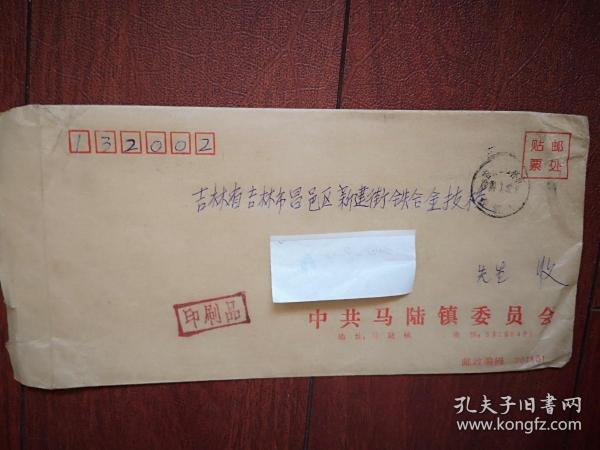 132002
贴邮
票处
吉林省吉林市昌邑区新建街铁合金技校
先生 收
印刷品
中共马陆镇委员会
地址:马陆镇
邮政编码 201801
孔夫子旧书网
www.kongfz.com